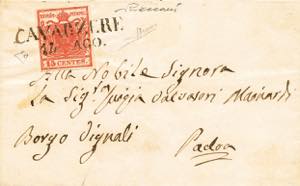 CAVARZERE
12 AGO.
15 CENTES.
Alla Nobile Signora
La Sig.ra Luigia Salvatori Mainardi
Borgo Vignali
Padoa